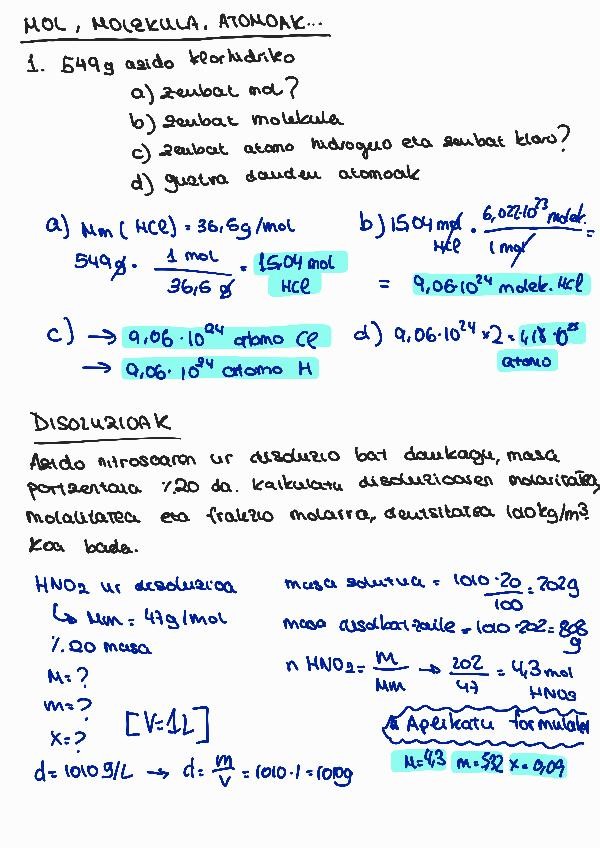 MOL, MOLEKULA, ATOMOAK...
1. 549g azido klorhidriko
a) zenbat mol?
b) zenbat molekula
c) zenbat atomo hidrogeno eta zenbat kloro?
d) guztira dauden atomoak
a) Mm(HCl) = 36,5g/mol
549g · 1 mol / 36,5 g = 15,04 mol HCl
b) 15,04 mol HCl · 6,022·10²³ molek. / 1 mol =
= 9,06·10²⁴ molek. HCl
c) → 9,06·10²⁴ atomo Cl
→ 9,06·10²⁴ atomo H
d) 9,06·10²⁴ × 2 =
atomo
DISOLUZIOAK
Azido nitrosoaren ur disoluzio bat daukagu, masa
portzentaia %20 da. Kalkulatu disoluzioaren molaritatea,
molalitatea eta frakzio molarra, dentsitatea 1010kg/m³
koa bada.
HNO2 ur disoluzioa
↳ Mm = 47g/mol
%20 masa
M=?
m=?
X=?
[V=1L]
d= 1010g/L → d= m/V = 1010·1 = 1010g
masa solutua = 1010·20/100 = 202g
masa disolbatzaile = 1010-202 = 808 g
n HNO2 = m/Mm → 202/47 = 4,3 mol HNO2
Aplikatu formulak
M=4,3 m=5,32 X=0,09